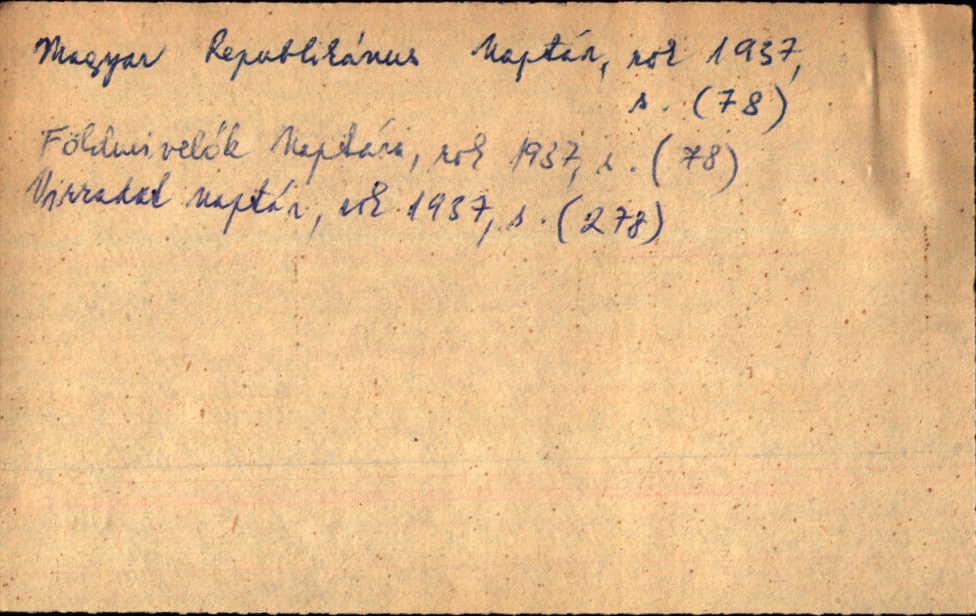 Magyar Republikánus Naptár, rok 1937,
s. (78)
Földmivelők Naptára, rok 1937, s. (78)
Virradat naptár, rok 1937, s. (278)